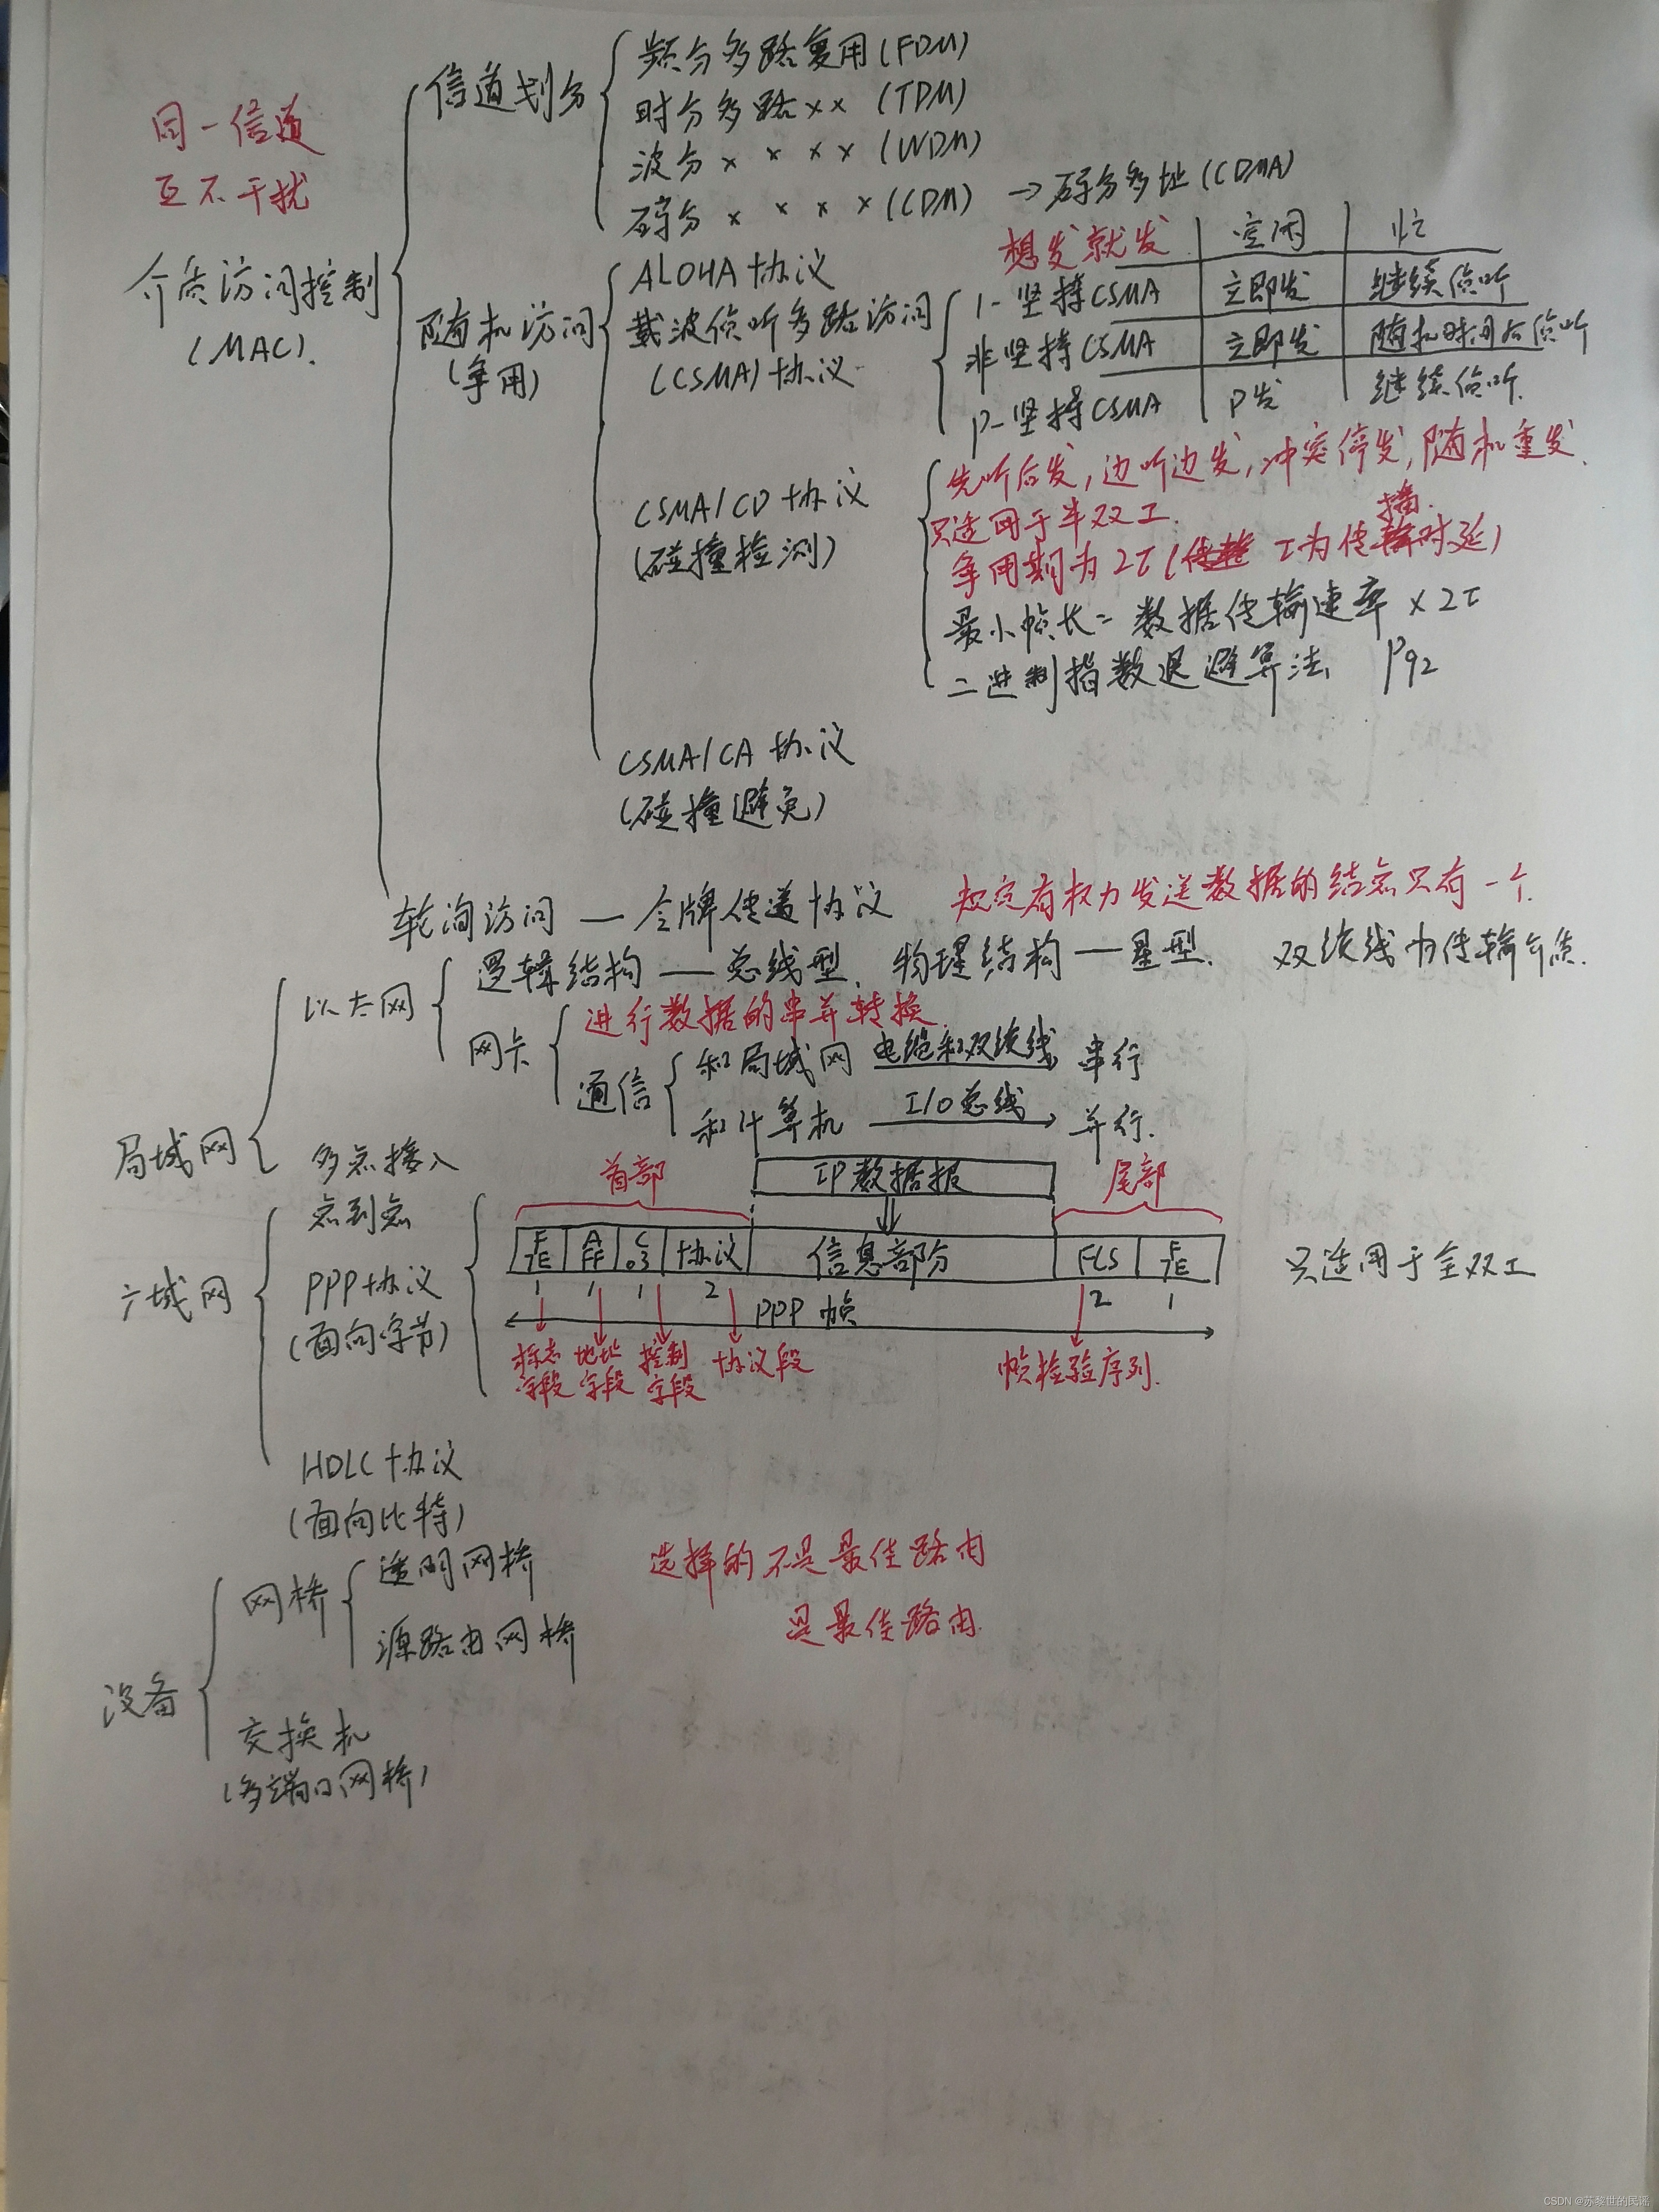 同一信道
互不干扰
介质访问控制
(MAC).
信道划分
频分多路复用(FDM)
时分多路×× (TDM)
波分× × × × (WDM)
码分× × × × (CDM) → 码分多址(CDMA)
随机访问
(争用)
ALOHA协议 想发就发
载波侦听多路访问
(CSMA)协议
空闲 忙
1-坚持CSMA 立即发 继续侦听
非坚持CSMA 立即发 随机时间后侦听
P-坚持CSMA P发 继续侦听.
CSMA/CD协议
(碰撞检测)
先听后发,边听边发,冲突停发,随机重发.
只适用于半双工.
争用期为2τ( τ为传播时延)
最小帧长=数据传输速率×2τ
二进制指数退避算法 P92
CSMA/CA协议
(碰撞避免)
轮询访问 — 令牌传递协议 规定有权力发送数据的结点只有一个.
局域网
以太网
逻辑结构 — 总线型. 物理结构 — 星型. 双绞线为传输介质.
网卡
进行数据的串并转换
通信
和局域网 电缆和双绞线 串行
和计算机 I/O总线 并行.
多点接入
广域网
点到点
PPP协议
(面向字节)
首部 IP数据报 尾部
F 7E A FF C 03 协议 信息部分 FCS F 7E
1 1 1 2 2 1
PPP帧
标志字段 地址字段 控制字段 协议段 帧检验序列.
只适用于全双工
HDLC协议
(面向比特)
设备
网桥
透明网桥 选择的不是最佳路由
源路由网桥 是最佳路由.
交换机
(多端口网桥)
CSDN @苏黎世的民谣